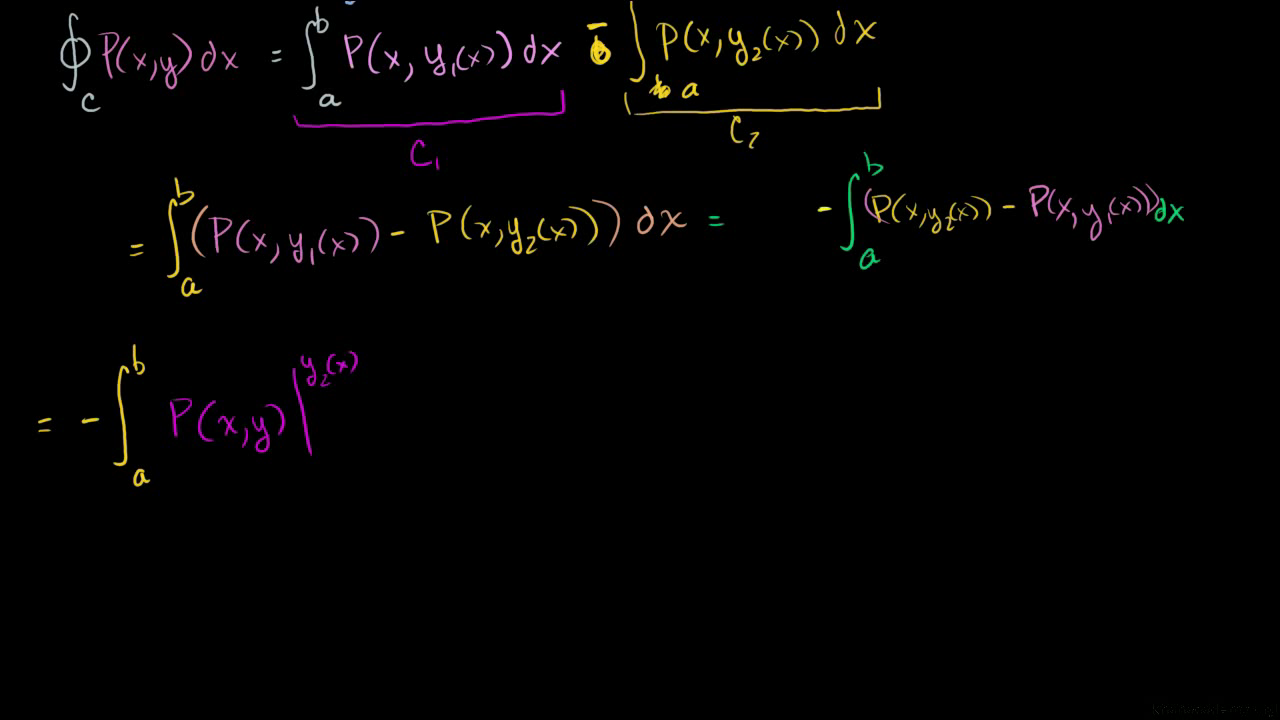 ∮_C P(x,y) dx = ∫_a^b P(x, y₁(x)) dx − ∫_a P(x, y₂(x)) dx
C₁ C₂
= ∫_a^b (P(x, y₁(x)) − P(x, y₂(x))) dx = − ∫_a^b (P(x, y₂(x)) − P(x, y₁(x))) dx
= − ∫_a^b P(x,y) |^{y₂(x)}